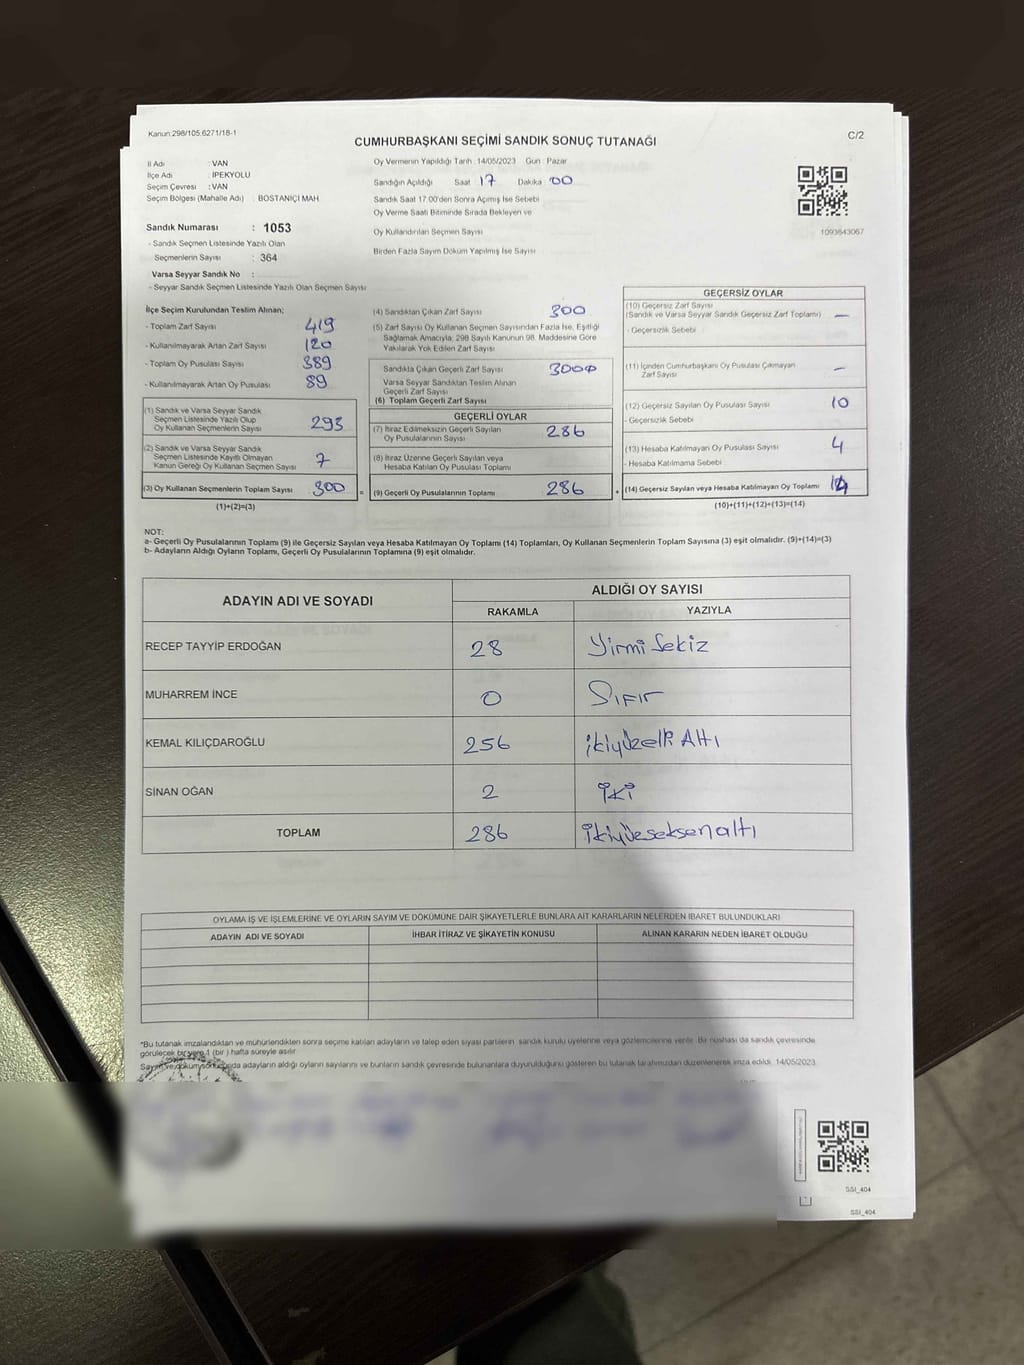 Kanun:298/105,6271/18-1
C/2
CUMHURBAŞKANI SEÇİMİ SANDIK SONUÇ TUTANAĞI
İl Adı : VAN
İlçe Adı : İPEKYOLU
Seçim Çevresi : VAN
Seçim Bölgesi (Mahalle Adı) : BOSTANİÇİ MAH
Sandık Numarası : 1053
- Sandık Seçmen Listesinde Yazılı Olan
Seçmenlerin Sayısı : 364
Varsa Seyyar Sandık No :
- Seyyar Sandık Seçmen Listesinde Yazılı Olan Seçmen Sayısı
Oy Vermenin Yapıldığı Tarih : 14/05/2023 Gün : Pazar
Sandığın Açıldığı Saat 17 Dakika : 00
Sandık Saat 17:00'den Sonra Açılmış İse Sebebi
Oy Verme Saati Bitiminde Sırada Bekleyen ve
Oy Kullandırılan Seçmen Sayısı
Birden Fazla Sayım Döküm Yapılmış İse Sayısı
1093643067
İlçe Seçim Kurulundan Teslim Alınan;
- Toplam Zarf Sayısı 419
- Kullanılmayarak Artan Zarf Sayısı 120
- Toplam Oy Pusulası Sayısı 389
- Kullanılmayarak Artan Oy Pusulası 89
(1) Sandık ve Varsa Seyyar Sandık
Seçmen Listesinde Yazılı Olup
Oy Kullanan Seçmenlerin Sayısı 293
(2) Sandık ve Varsa Seyyar Sandık
Seçmen Listesinde Kayıtlı Olmayan
Kanun Gereği Oy Kullanan Seçmen Sayısı 7
(3) Oy Kullanan Seçmenlerin Toplam Sayısı 300
(1)+(2)=(3)
=
(4) Sandıktan Çıkan Zarf Sayısı 300
(5) Zarf Sayısı Oy Kullanan Seçmen Sayısından Fazla İse, Eşitliği
Sağlamak Amacıyla; 298 Sayılı Kanunun 98. Maddesine Göre
Yakılarak Yok Edilen Zarf Sayısı
Sandıkta Çıkan Geçerli Zarf Sayısı 300
Varsa Seyyar Sandıktan Teslim Alınan
Geçerli Zarf Sayısı
(6) Toplam Geçerli Zarf Sayısı
GEÇERLİ OYLAR
(7) İtiraz Edilmeksizin Geçerli Sayılan
Oy Pusulalarının Sayısı 286
(8) İtiraz Üzerine Geçerli Sayılan veya
Hesaba Katılan Oy Pusulası Toplamı
(9) Geçerli Oy Pusulalarının Toplamı 286
+
GEÇERSİZ OYLAR
(10) Geçersiz Zarf Sayısı
(Sandık ve Varsa Seyyar Sandık Geçersiz Zarf Toplamı) —
- Geçersizlik Sebebi
(11) İçinden Cumhurbaşkanı Oy Pusulası Çıkmayan
Zarf Sayısı —
(12) Geçersiz Sayılan Oy Pusulası Sayısı 10
- Geçersizlik Sebebi
(13) Hesaba Katılmayan Oy Pusulası Sayısı 4
- Hesaba Katılmama Sebebi
(14) Geçersiz Sayılan veya Hesaba Katılmayan Oy Toplamı 14
(10)+(11)+(12)+(13)=(14)
NOT:
a- Geçerli Oy Pusulalarının Toplamı (9) ile Geçersiz Sayılan veya Hesaba Katılmayan Oy Toplamı (14) Toplamları, Oy Kullanan Seçmenlerin Toplam Sayısına (3) eşit olmalıdır. (9)+(14)=(3)
b- Adayların Aldığı Oyların Toplamı, Geçerli Oy Pusulalarının Toplamına (9) eşit olmalıdır.
ADAYIN ADI VE SOYADI
ALDIĞI OY SAYISI
RAKAMLA YAZIYLA
RECEP TAYYİP ERDOĞAN 28 Yirmi Sekiz
MUHARREM İNCE 0 Sıfır
KEMAL KILIÇDAROĞLU 256 ikiyüzelli Altı
SİNAN OĞAN 2 İki
TOPLAM 286 ikiyüzseksenaltı
OYLAMA İŞ VE İŞLEMLERİNE VE OYLARIN SAYIM VE DÖKÜMÜNE DAİR ŞİKAYETLERLE BUNLARA AİT KARARLARIN NELERDEN İBARET BULUNDUKLARI
ADAYIN ADI VE SOYADI İHBAR İTİRAZ VE ŞİKAYETİN KONUSU ALINAN KARARIN NEDEN İBARET OLDUĞU
*Bu tutanak imzalandıktan ve mühürlendikten sonra seçime katılan adayların ve talep eden siyasi partilerin sandık kurulu üyelerine veya gözlemcilerine verilir. Bir nüshası da sandık çevresinde
görülecek bir yere 1 (bir) hafta süreyle asılır.
Sayım ve döküm sonucunda adayların aldığı oyların sayılarını ve bunların sandık çevresinde bulunanlara duyurulduğunu gösteren bu tutanak tarafımızdan düzenlenerek imza edildi. 14/05/2023
SSI_404
SSI_404